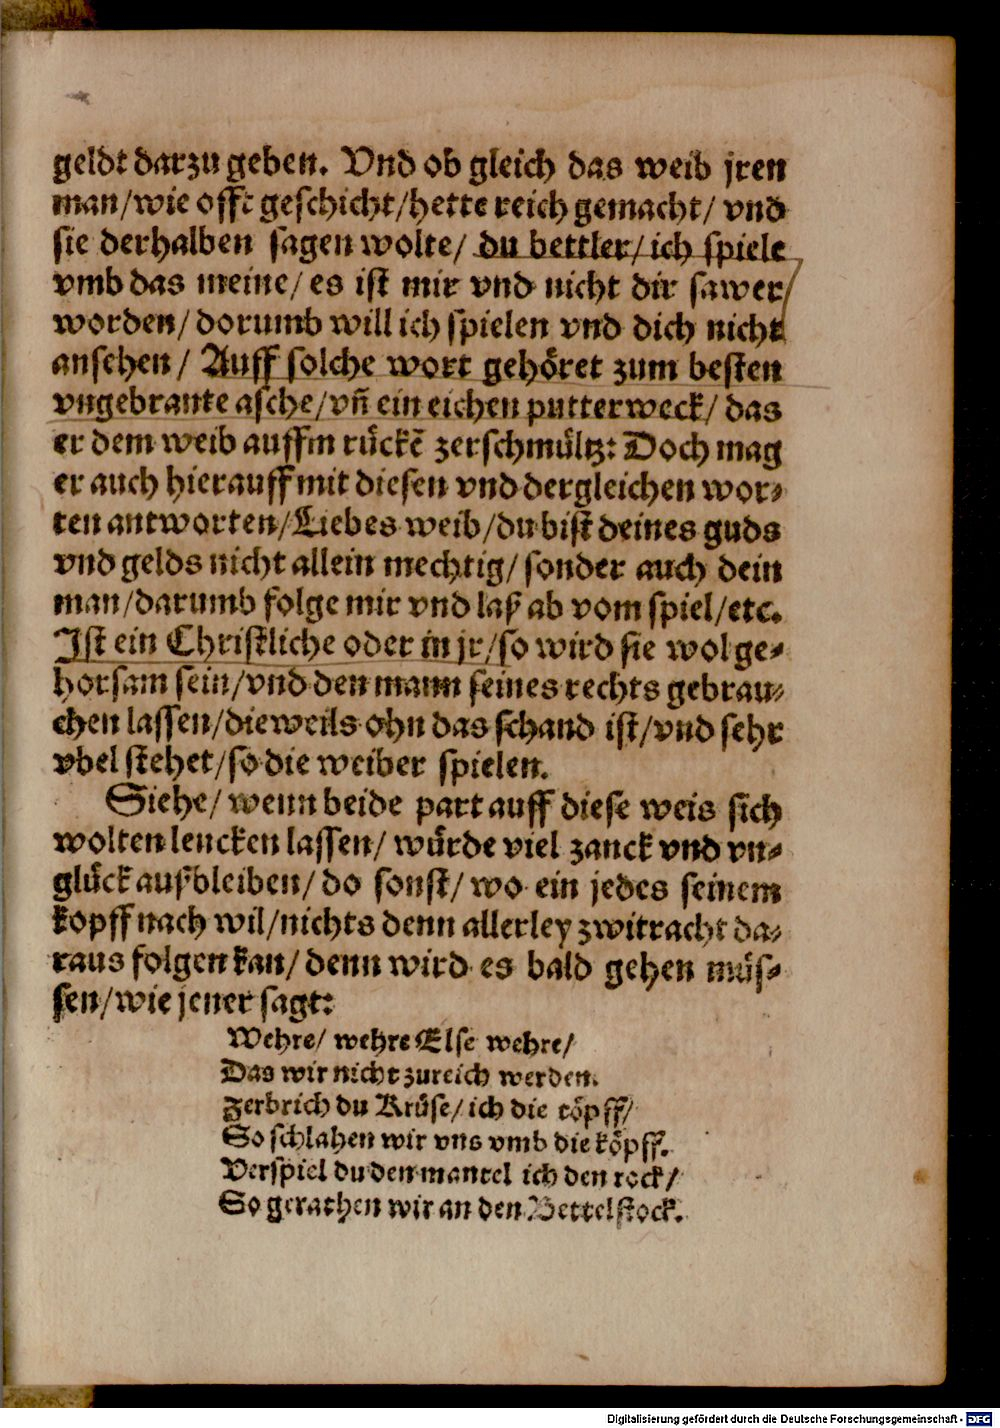 geldt darzu geben. Vnd ob gleich das weib jren
man/wie offt geschicht/hette reich gemacht/ vnd
sie derhalben sagen wolte/ du bettler/ich spiele
vmb das meine/ es ist mir vnd nicht dir sawer
worden/ dorumb will ich spielen vnd dich nicht
ansehen/ Auff solche wort gehöret zum besten
vngebrante asche/vñ ein eichen putterweck/ das
er dem weib auffm rückē zerschmültz: Doch mag
er auch hierauff mit diesen vnd dergleichen wor⸗
ten antworten/Liebes weib/du bist deines guds
vnd gelds nicht allein mechtig/ sonder auch dein
man/darumb folge mir vnd laß ab vom spiel/etc.
Ist ein Christliche oder in jr/so wird sie wol ge⸗
horsam sein/vnd den mann seines rechts gebrau⸗
chen lassen/dieweils ohn das schand ist/vnd sehr
vbel stehet/so die weiber spielen.
Siehe/ wenn beide part auff diese weis sich
wolten lencken lassen/ würde viel zanck vnd vn⸗
glück außbleiben/ do sonst/ wo ein jedes seinem
kopff nach wil/nichts denn allerley zwitracht da⸗
raus folgen kan/ denn wird es bald gehen müs⸗
sen/wie jener sagt:
Wehre/ wehre Else wehre/
Das wir nicht zureich werden.
Zerbrich du Krüse/ich die töpff/
So schlahen wir vns vmb die köpff.
Verspiel du den mantel ich den rock/
So gerathen wir an den Bettelstock.
Digitalisierung gefördert durch die Deutsche Forschungsgemeinschaft - DFG